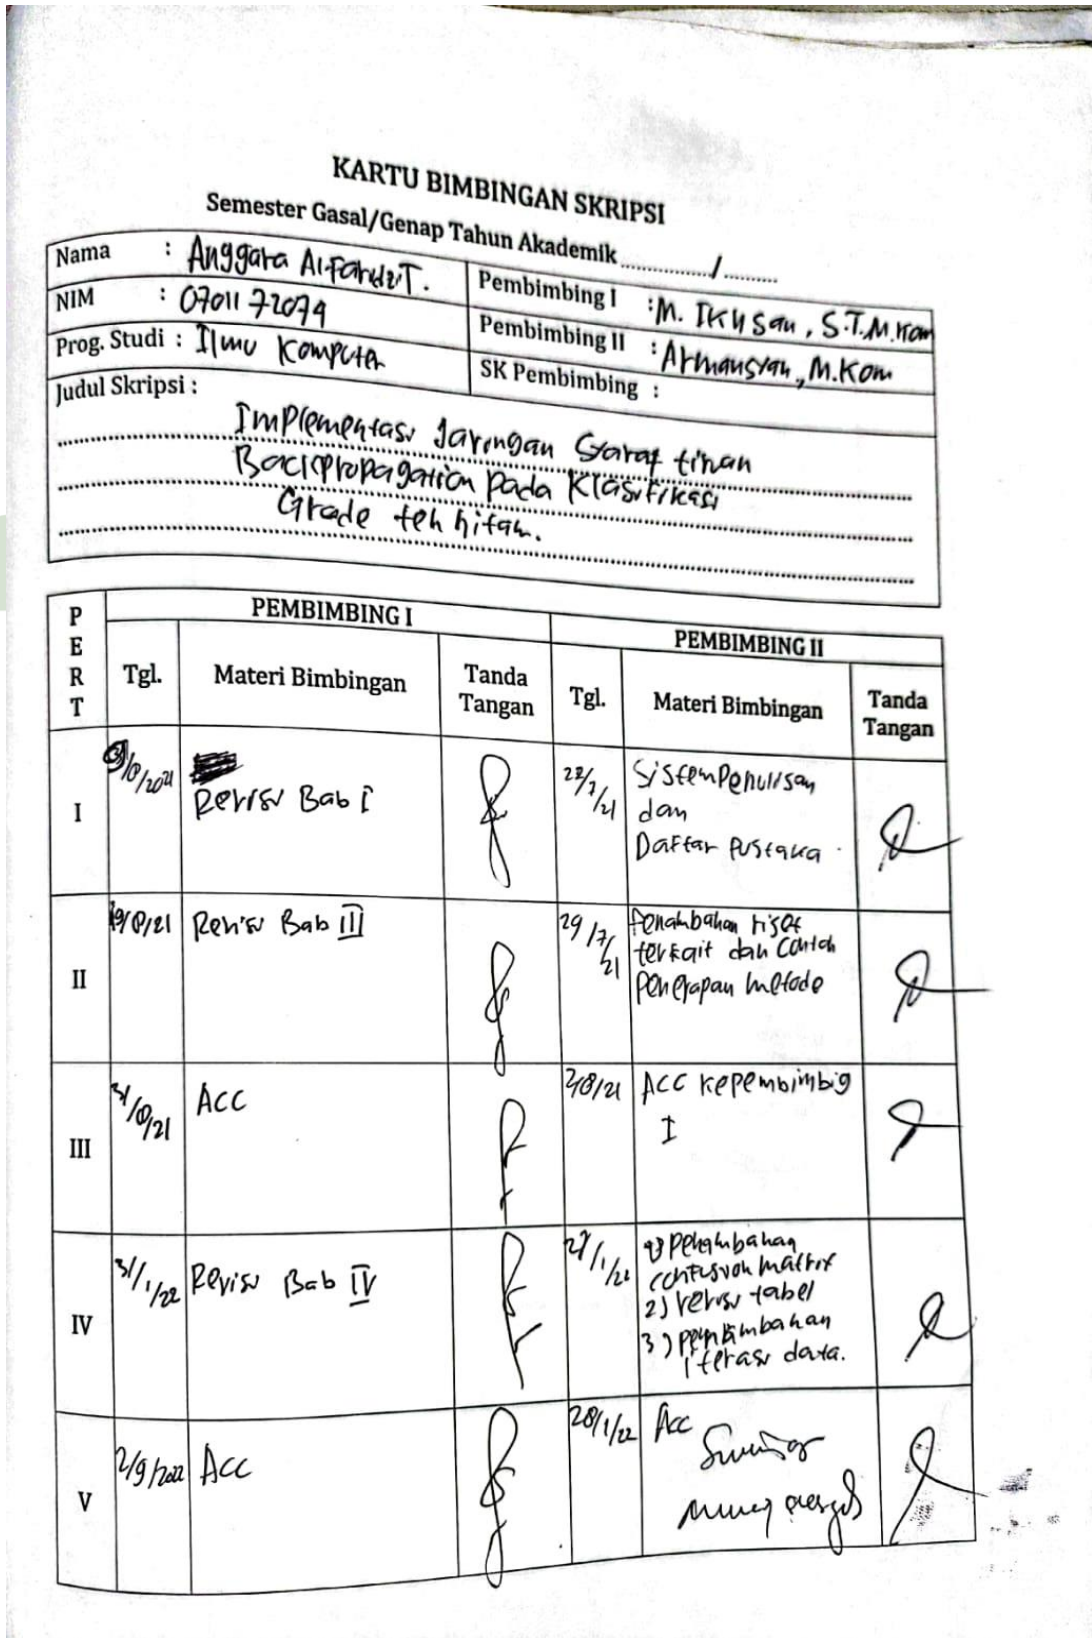 KARTU BIMBINGAN SKRIPSI
Semester Gasal/Genap Tahun Akademik ............../.........
Nama : Anggara Al-Faridzi T.
NIM : 0701172079
Prog. Studi : Ilmu Komputer
Pembimbing I : M. Ikhsan, S.T.M.Kom
Pembimbing II : Armansyah, M.Kom
SK Pembimbing :
Judul Skripsi :
Implementasi Jaringan Syaraf tiruan
Backpropagation pada Klasifikasi
Grade teh hitam.
PERT
PEMBIMBING I
PEMBIMBING II
Tgl.
Materi Bimbingan
Tanda
Tangan
Tgl.
Materi Bimbingan
Tanda
Tangan
I
/8/2021
Revisi Bab I
22/7/21
Sistem Penulisan
dan
Daftar Pustaka
II
19/8/21
Revisi Bab III
29/7/21
Penambahan riset
terkait dan Contoh
penerapan metode
III
31/8/21
ACC
2/8/21
ACC kepembimbig
I
IV
31/1/22
Revisi Bab IV
27/1/22
1) penambahan
confusion matrix
2) revisi tabel
3) penambahan
iterasi data.
V
2/9/2022
ACC
28/1/22
Acc